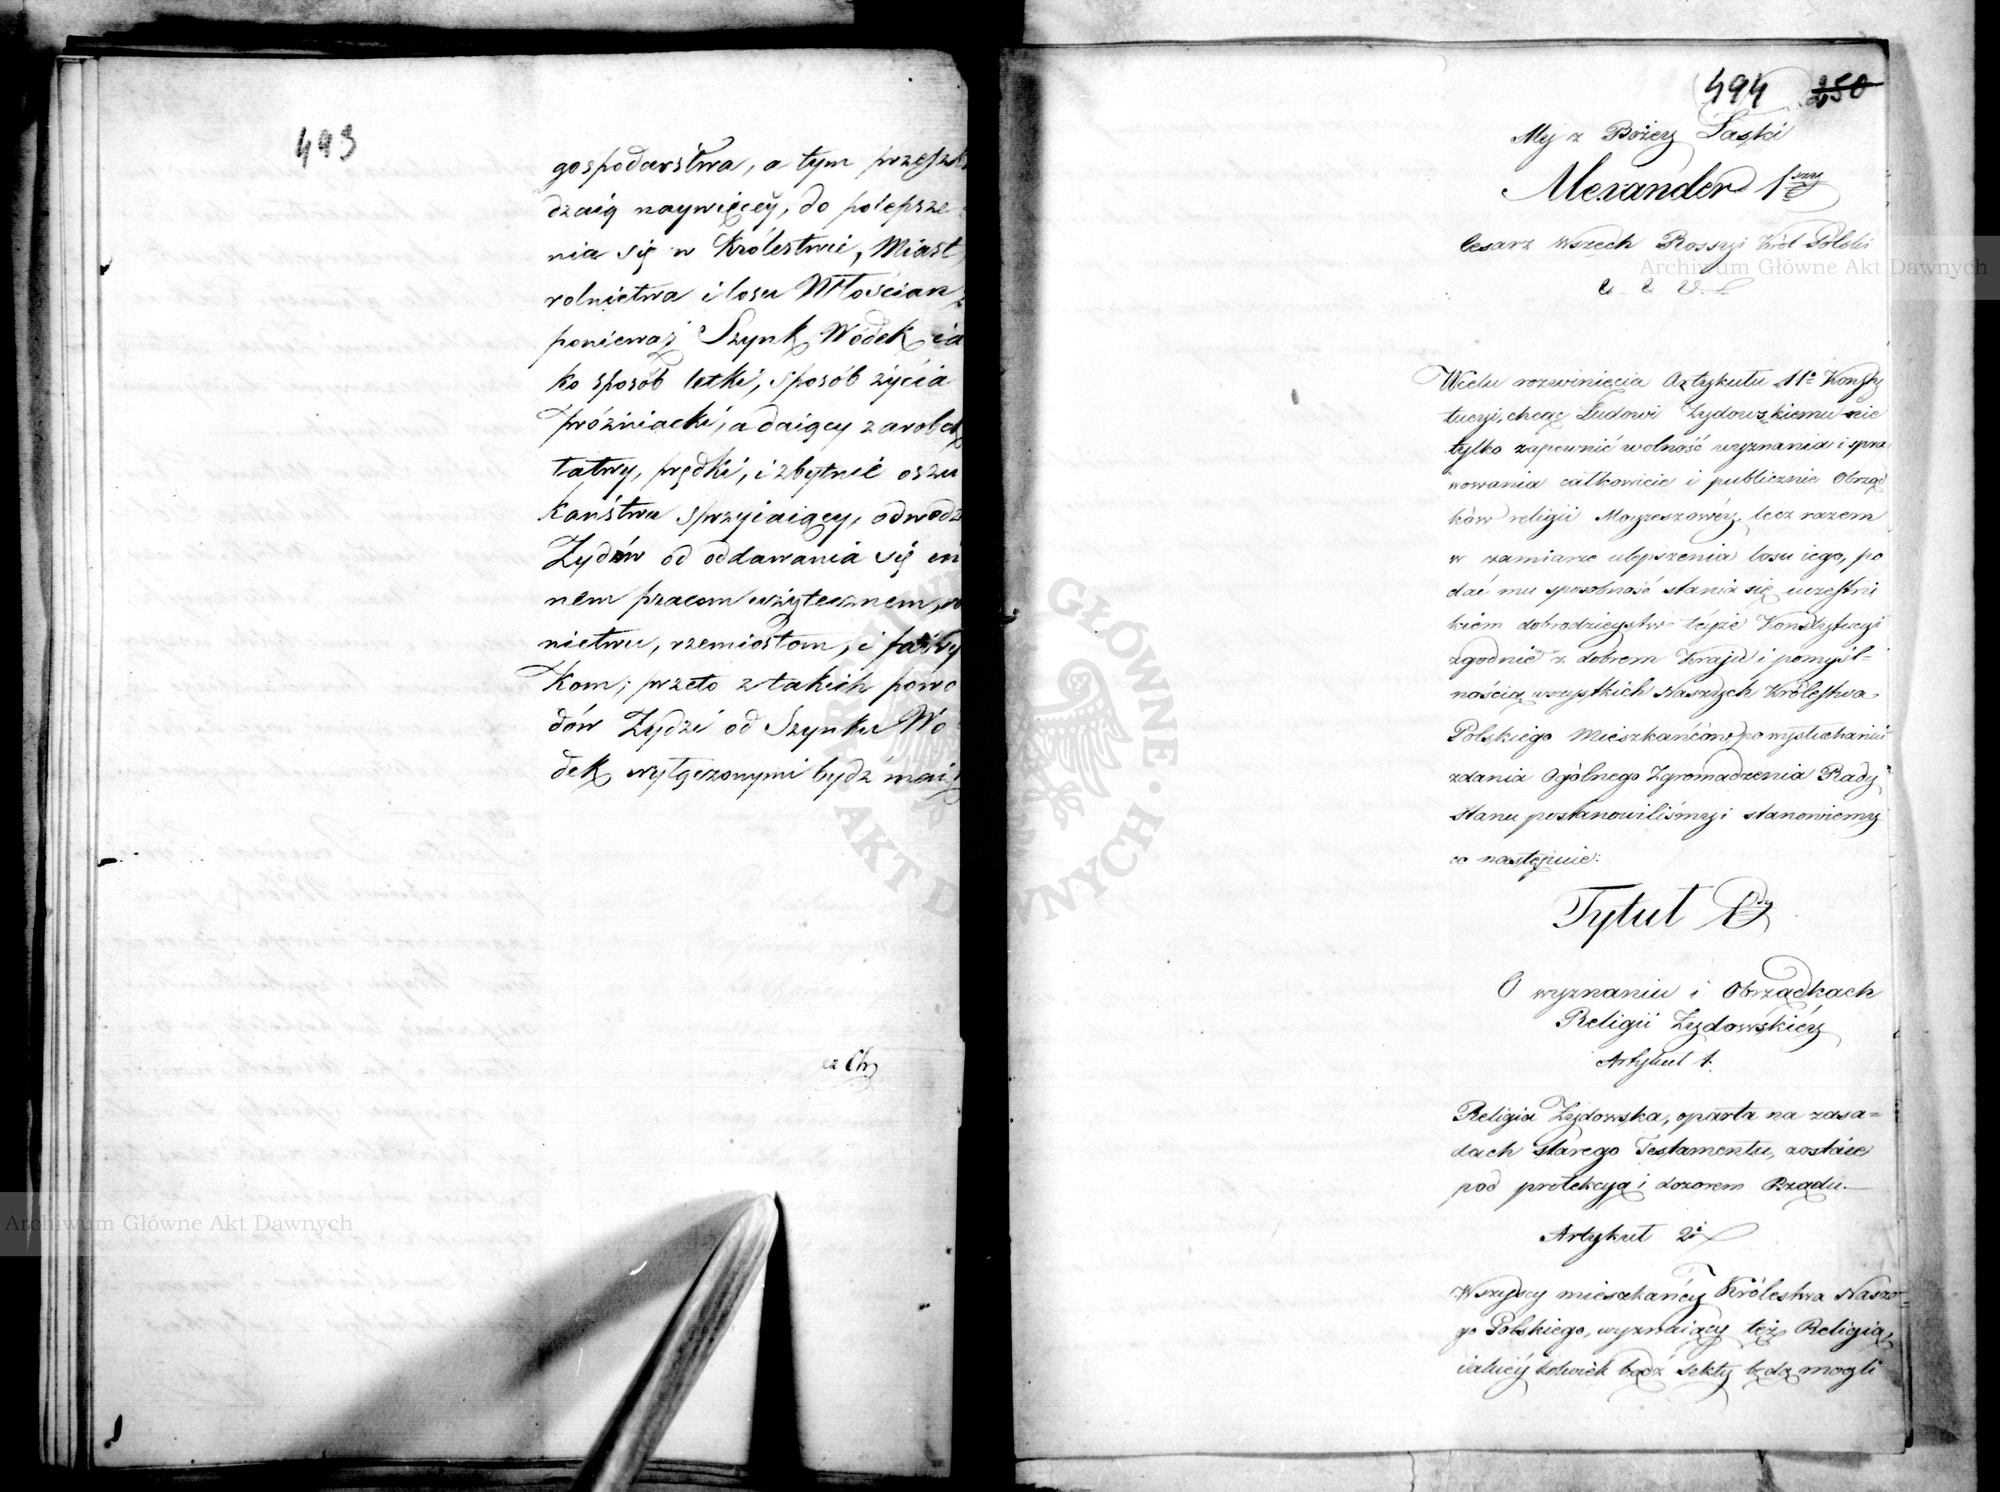 493
gospodarstwa, a tym przeszka
dzaią naywięcey, do polepsze-
nia się w Królestwie, Miast
rolnictwa i losu Włościan,
ponieważ Szynk Wódek ia
ko sposób letki, sposób życia
próżniacki, a daiący zarobek
łatwy, prędki, i zbytnie oszu
kaństwu sprzyiaiący, odwodzi
Żydów od oddawania się in
nem pracom użytecznem,
nictwu, rzemiosłom, i fabry
kom; przeto z takich powo
dów Żydzi od Szynku Wó
dek wyłączonymi bydź maią
494 250
My z Bożey Łaski
Alexander 1szy
Cesarz Wszech Rossyi Król Polski
&. &. &.
W celu rozwinięcia Artykułu 11o Konsty
tucyi, chcąc Ludowi Żydowskiemu nie
tylko zapewnić wolność wyznania i spra
wowania całkowicie i publicznie Obrząd
ków religii Moyżeszowéy, lecz razem
w zamiarze ulepszenia losu iego, po
dać mu sposobność stania się uczestni
kiem dobrodzieystw teyże Konstytucyi
zgodnie z dobrem Kraju i pomyśl=
nością wszystkich Naszych Królestwa
Polskiego Mieszkańców, po wysłuchaniu
zdania Ogólnego Zgromadzenia Rady
Stanu postanowiliśmy i stanowiemy
co następuie:
Tytuł I
O wyznaniu i Obrządkach
Religii Żydowskiéy
Artykuł 1.
Religia Żydowska, oparta na zasa=
dach starego Testamentu, zostaie
pod protekcyą i dozorem Rządu.—
Artykuł 2i
Wszyscy mieszkańcy Królestwa Nasze-
go Polskiego, wyznaiący też Religią,
iakiéy kolwiek bądź sekty będą mogli
Archiwum Główne Akt Dawnych
Archiwum Główne Akt Dawnych
ARCHIWUM GŁÓWNE AKT DAWNYCH